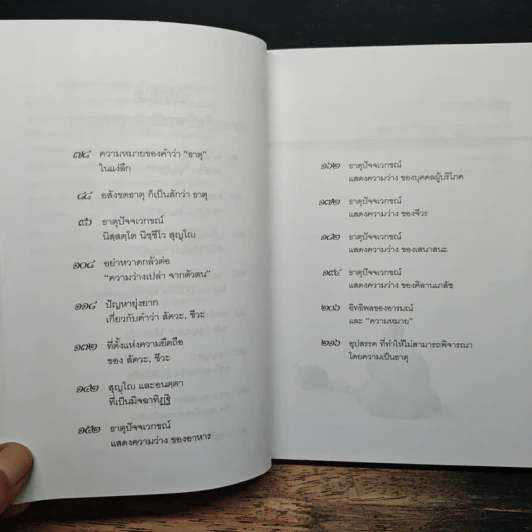 ๗๔ ความหมายของคำว่า "ธาตุ"
ในแง่ลึก
๘๔ อสังขตธาตุ ก็เป็นสักว่า ธาตุ
๙๖ ธาตุปัจจเวกขณ์
นิสฺสตฺโต นิชฺชีโว สุญฺโญ
๑๐๔ อย่าหวาดกลัวต่อ
"ความว่างเปล่า จากตัวตน"
๑๑๔ ปัญหายุ่งยาก
เกี่ยวกับคำว่า สัตวะ, ชีวะ
๑๓๒ ที่ตั้งแห่งความยึดถือ
ของ สัตวะ, ชีวะ
๑๔๒ สุญฺโญ และอนตฺตา
ที่เป็นมิจฉาทิฏฐิ
๑๕๒ ธาตุปัจจเวกขณ์
แสดงความว่าง ของอาหาร
๑๖๒ ธาตุปัจจเวกขณ์
แสดงความว่าง ของบุคคลผู้บริโภค
๑๗๒ ธาตุปัจจเวกขณ์
แสดงความว่าง ของจีวร
๑๘๒ ธาตุปัจจเวกขณ์
แสดงความว่าง ของเสนาสนะ
๑๙๔ ธาตุปัจจเวกขณ์
แสดงความว่าง ของคิลานเภสัช
๒๐๖ อิทธิพลของอารมณ์
และ "ความหมาย"
๒๑๖ อุปสรรค ที่ทำให้ไม่สามารถพิจารณา
โดยความเป็นธาตุ